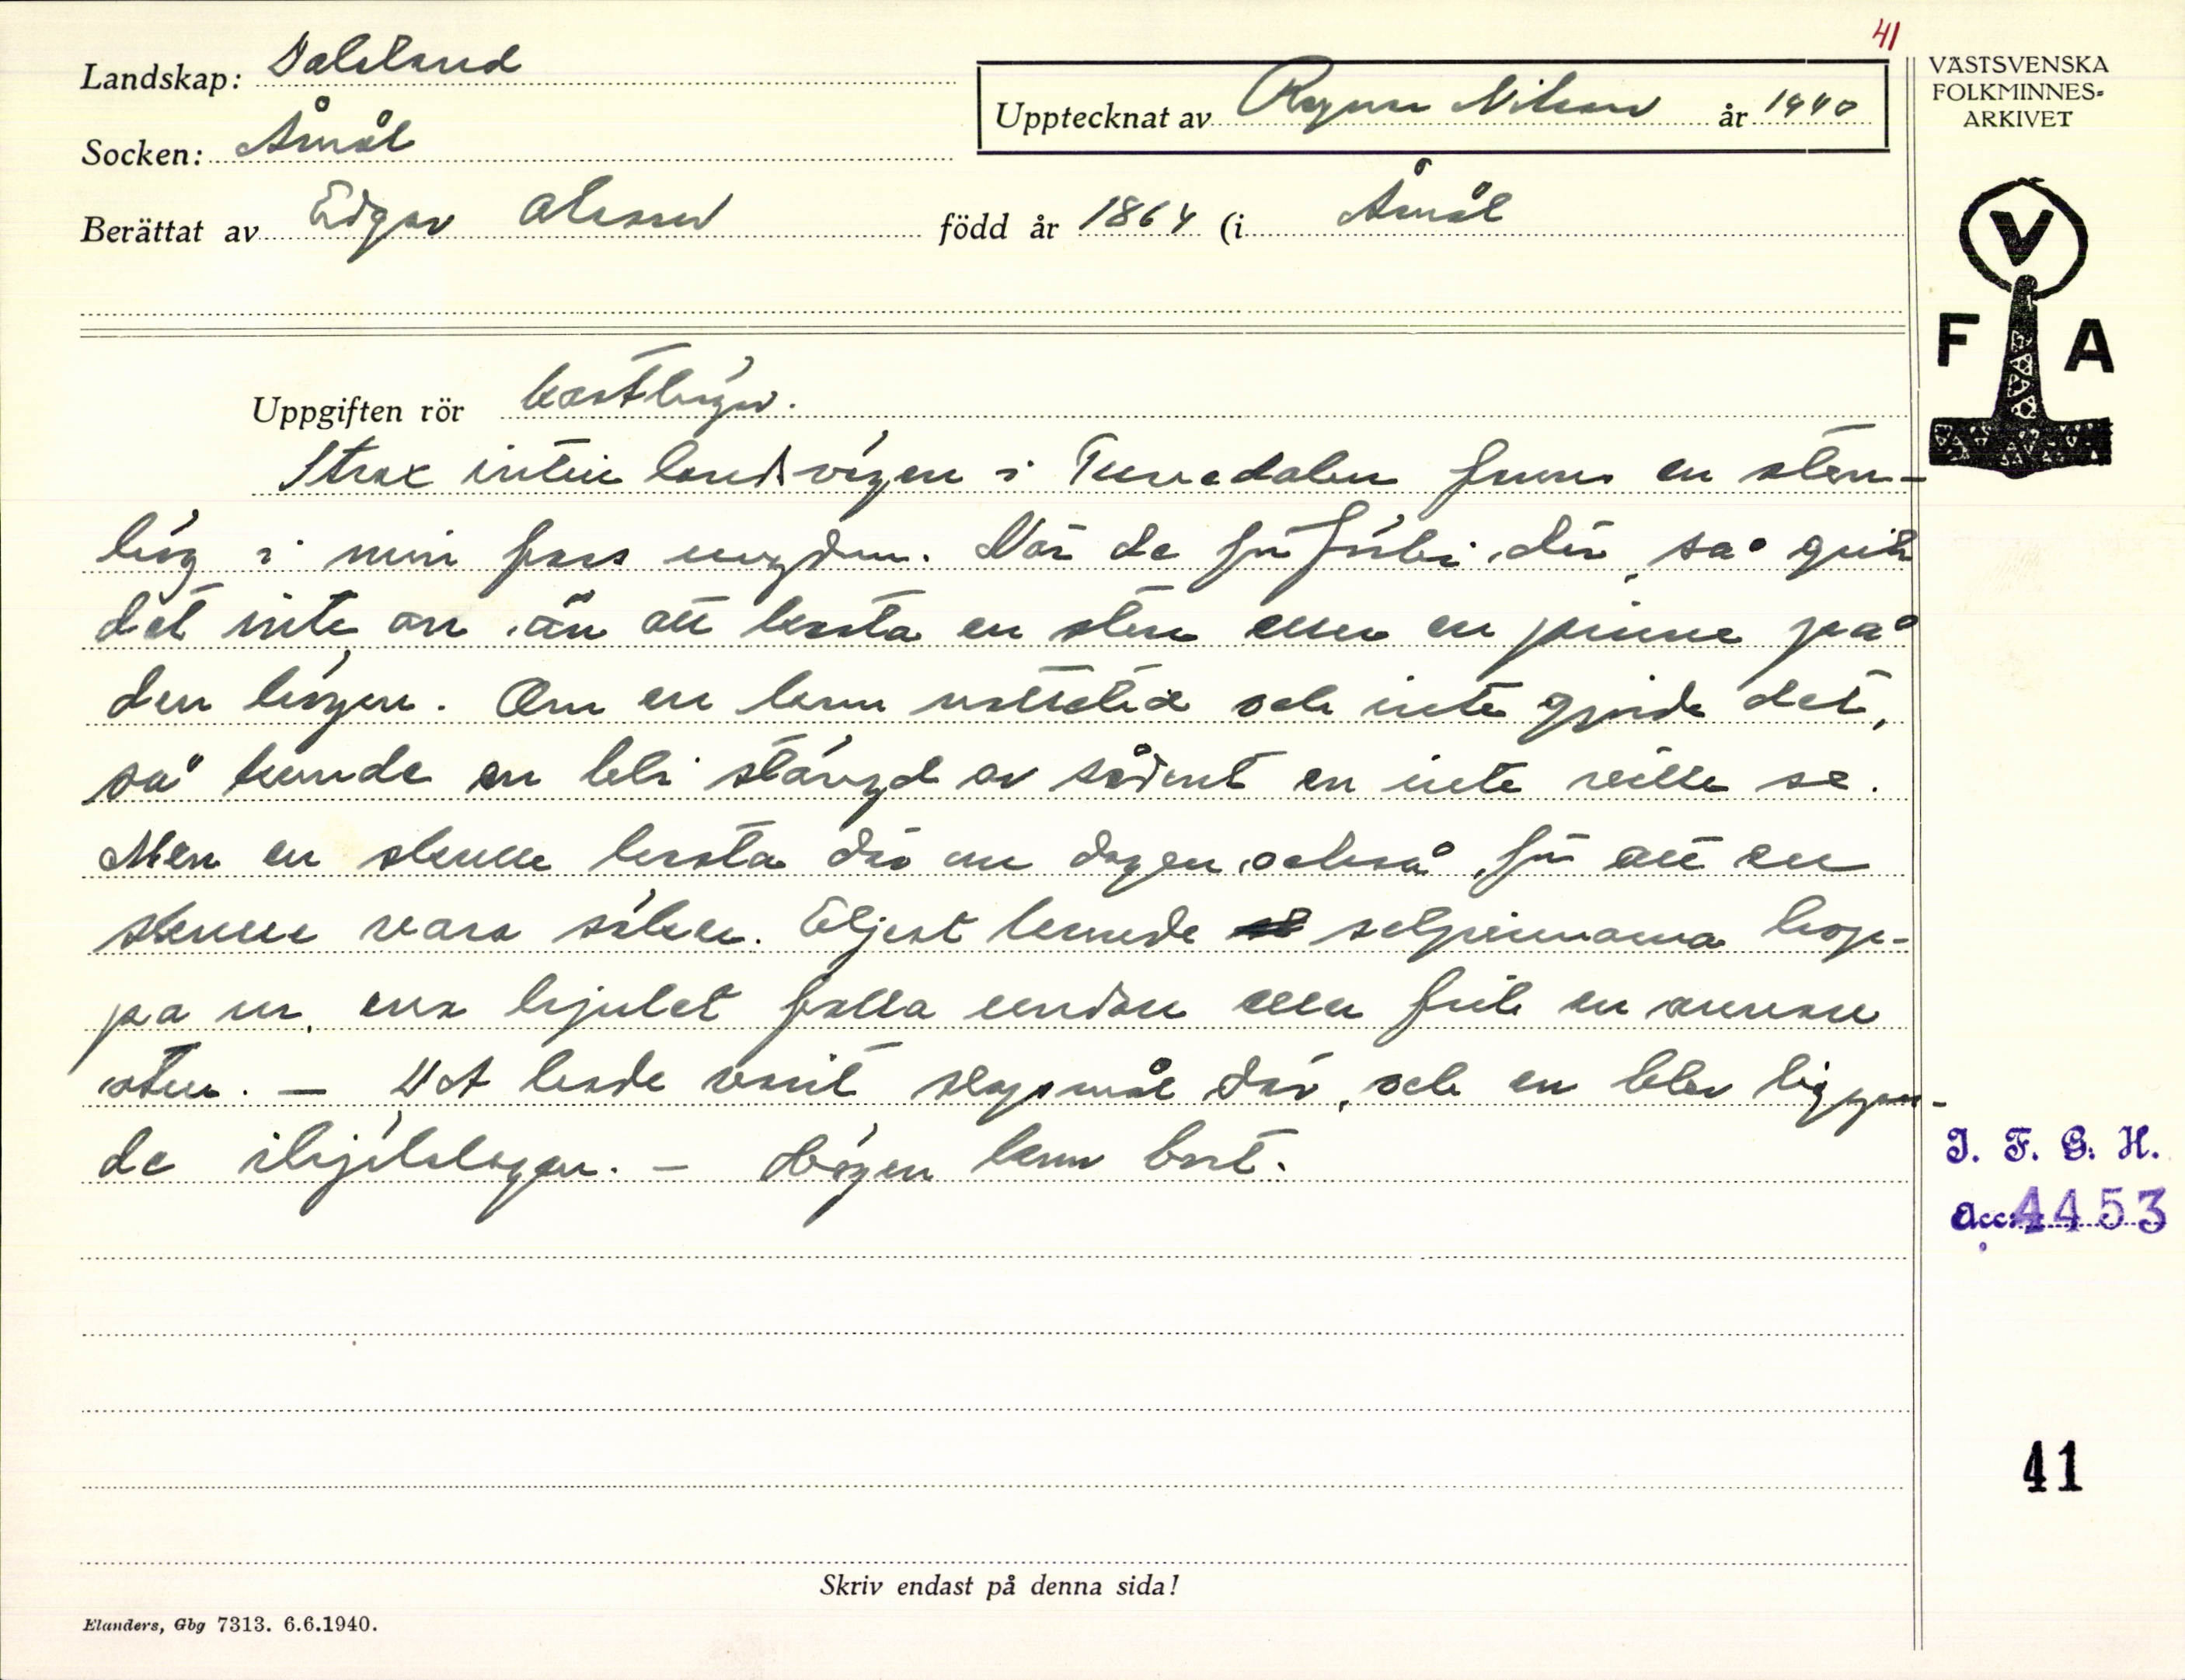 41
Landskap: Dalsland
Socken: Åmål
Upptecknat av Ragnar Nilsson år 1940
Berättat av Edgar Olsson född år 1864 (i Åmål
VÄSTSVENSKA
FOLKMINNES-
ARKIVET
V
F A
Uppgiften rör kasthögar.
Strax intill landsvägen i Tuvedalen fanns en sten-
hög i min fars ungdom. När de for förbi där, så gick
det inte an, än att kasta en sten eller en pinne på
den högen. Om en kom nattetid och inte gjorde det,
så kunde en bli stängd av sådant en inte ville se.
Men en skulle kasta där om dagen också, för att en
skulle vara säker. Eljest kunde selpinnarna hop-
pa ur, ena hjulet falla undan eller fick en annan
oturn. — Det hade varit slagsmål där, och en blev liggan-
de ihjälslagen. — Högen kom bort.
I. F. G. H.
Acc. 4453
41
Skriv endast på denna sida!
Elanders, Gbg 7313. 6.6.1940.